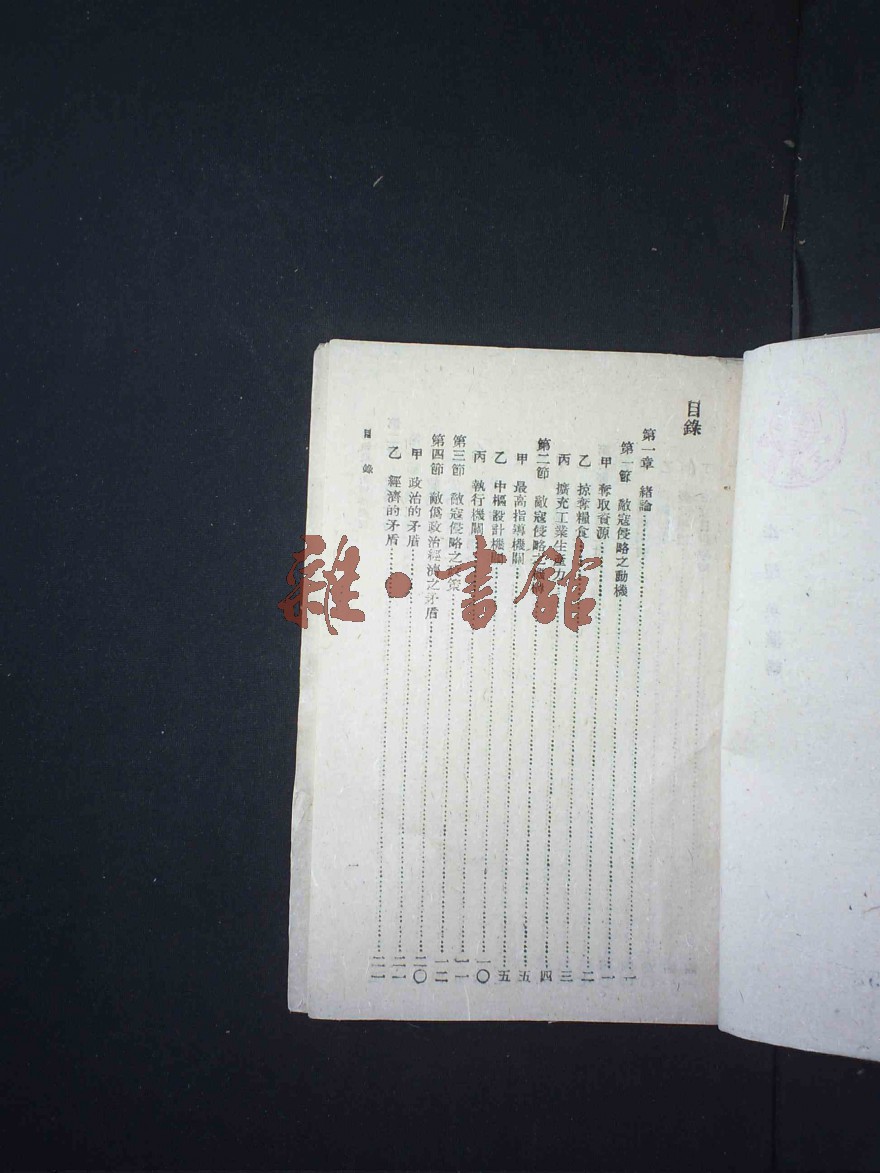 目錄
第一章 緒論……一
第一節 敵寇侵略之動機……一
甲 奪取資源……二
乙 掠奪糧食……三
丙 擴充工業生產力……四
第二節 敵寇侵略之機構……五
甲 最高指導機關……五
乙 中樞設計機關……一〇
丙 執行機關……一一
第三節 敵寇侵略之策……一二
第四節 敵偽政治經濟之矛盾……二〇
甲 政治的矛盾……二一
乙 經濟的矛盾……二二
目錄
一
雜·書館